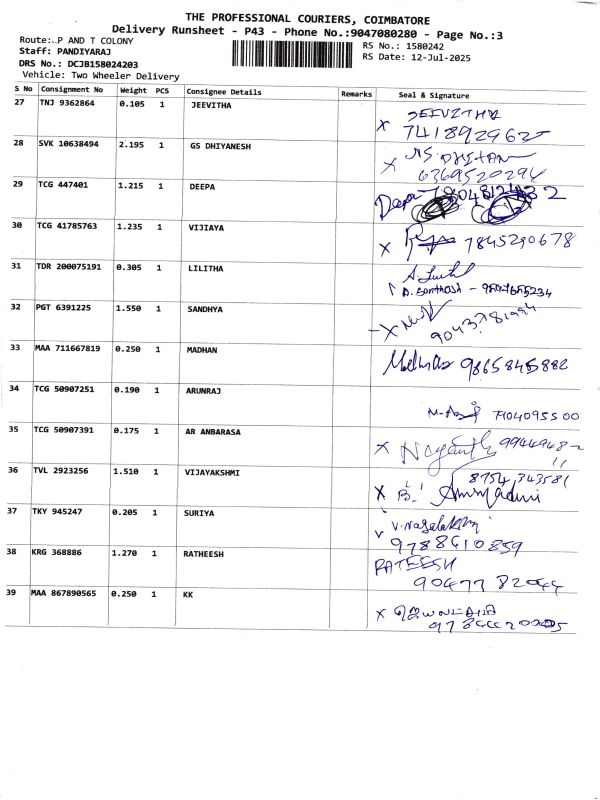 THE PROFESSIONAL COURIERS, COIMBATORE
Delivery Runsheet - P43 - Phone No.:9047080280 - Page No.:3
Route: P AND T COLONY RS No.: 1580242
Staff: PANDIYARAJ RS Date: 12-Jul-2025
DRS No.: DCJB158024203
Vehicle: Two Wheeler Delivery
S No Consignment No Weight PCS Consignee Details Remarks Seal & Signature
27 TNJ 9362864 0.105 1 JEEVITHA JEEVITHA
X 7418929625
28 SVK 10638494 2.195 1 GS DHIYANESH
X 6369520294
29 TCG 447401 1.215 1 DEEPA Deepa
30 TCG 41785763 1.235 1 VIJIAYA X 7845290678
31 TDR 200075191 0.305 1 LILITHA
32 PGT 6391225 1.550 1 SANDHYA X
33 MAA 711667819 0.250 1 MADHAN 9865845882
34 TCG 50907251 0.190 1 ARUNRAJ
35 TCG 50907391 0.175 1 AR ANBARASA X
36 TVL 2923256 1.510 1 VIJAYAKSHMI 8754343581
X B.
37 TKY 945247 0.205 1 SURIYA V.Nagalakshmi
9788610859
38 KRG 368886 1.270 1 RATHEESH RATEESH
9047782044
39 MAA 867890565 0.250 1 KK X